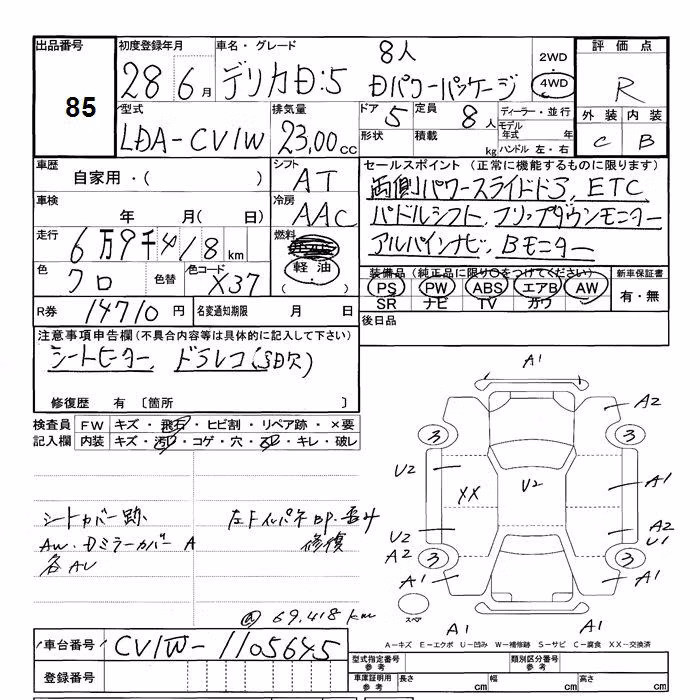 出品番号
85
初度登録年月
28 6月
車名・グレード
8人
デリカD:5 Dパワーパッケージ
2WD
4WD
評価点
R
外装 内装
C B
型式
LDA-CV1W
排気量
23,00 cc
ドア
5
定員
8人
形状
積載 kg
ディーラー・並行
モデル年式 年
ハンドル 左・右
車歴
自家用・( )
シフト
AT
車検
年 月( 日)
冷房
AAC
走行
6万9千418km
燃料
軽油
( )
色
クロ
色替
色コード
X37
R券 14710円
名変通知期限 月 日
セールスポイント(正常に機能するものに限ります)
両側パワースライドドア、ETC
パドルシフト、フリップダウンモニター
アルパインナビ、Bモニター
装備品(純正品に限り○をつけてください)
PS PW ABS エアB AW
SR ナビ TV カワ
新車保証書
有・無
後日品
注意事項申告欄(不具合内容等は具体的に記入して下さい)
シートヒーター、ドラレコ(SD欠)
修復歴 有〔箇所 〕
検査員記入欄
FW キズ・飛石・ヒビ割・リペア跡・×要
内装 キズ・汚レ・コゲ・穴・スレ・キレ・破レ
シートカバー跡
AW・Dミラーカバー A
各AU
左Fインパネ BP 歪み
修復
@ 69,418km
A1
A2
3
3
U2
XX
U2
A1
U2
A2
A2
U1
3
3
A1
A1
スペア
A1
A1
A=キズ E=エクボ U=凹み W=補修跡 S=サビ C=腐食 XX=交換済
車台番号 CV1W-1105645
登録番号
型式指定番号
参考
類別区分番号
参考
車庫証明用
参考
長さ cm
幅 cm
高さ cm